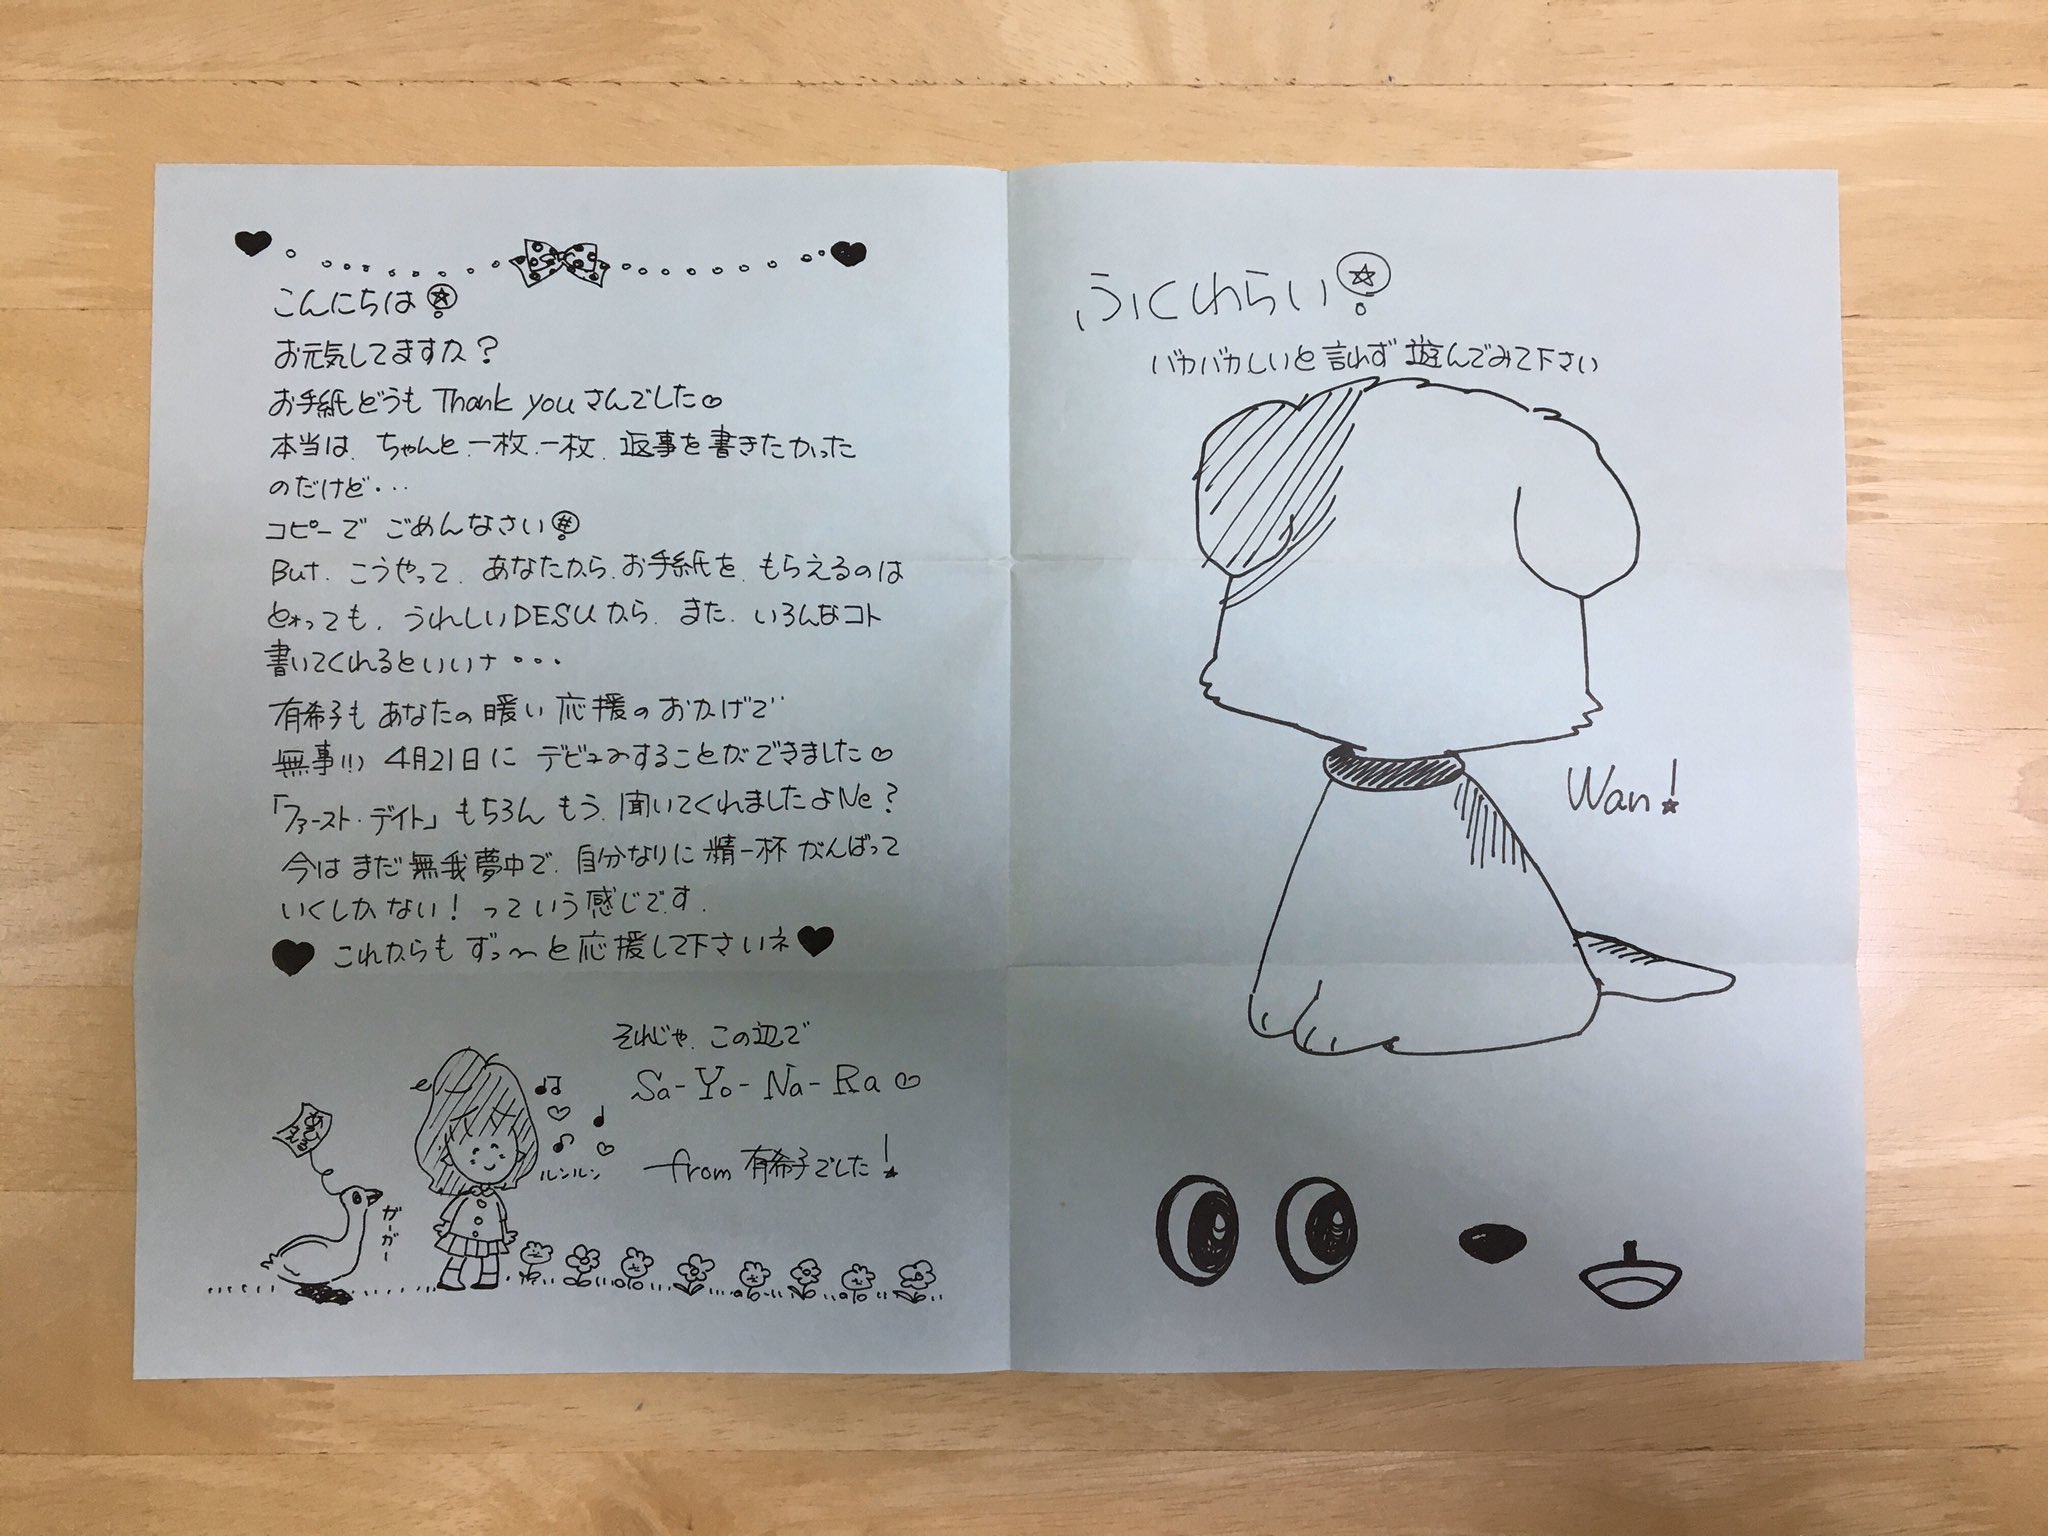 こんにちは
お元気してますカ?
お手紙どうも Thank you さんでした♡
本当は、ちゃんと、一枚、一枚、返事を書きたかった
のだけど・・・
コピーで ごめんなさい
But、こうやって、あなたから、お手紙を、もらえるのは
とォっても、うれしいDESUから、また、いろんなコト
書いてくれるといいナ・・・
有希子も あなたの 暖い 応援の おかげで
無事!!) 4月21日に デビューすることができました♡
「ファースト・デイト」もちろん もう、聞いてくれましたよNe?
今は まだ 無我夢中で、自分なりに 精一杯 がんばって
いくしかない! っていう感じです.
♥ これからも ずっ〜と応援して下さいネ♥
それじゃ、この辺で
Sa-Yo-Na-Ra♡
from 有希子でした!
ルンルン
ガーガー
ふくわらい
バカバカしいと言わず 遊んでみて下さい
Wan!